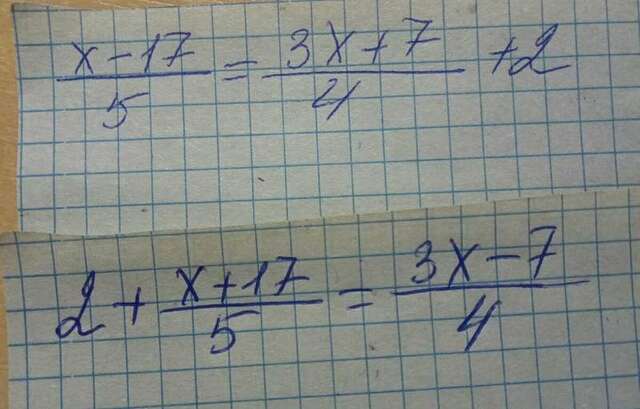 x-17/5 = 3x+7/4 +2
2 + x+17/5 = 3x-7/4